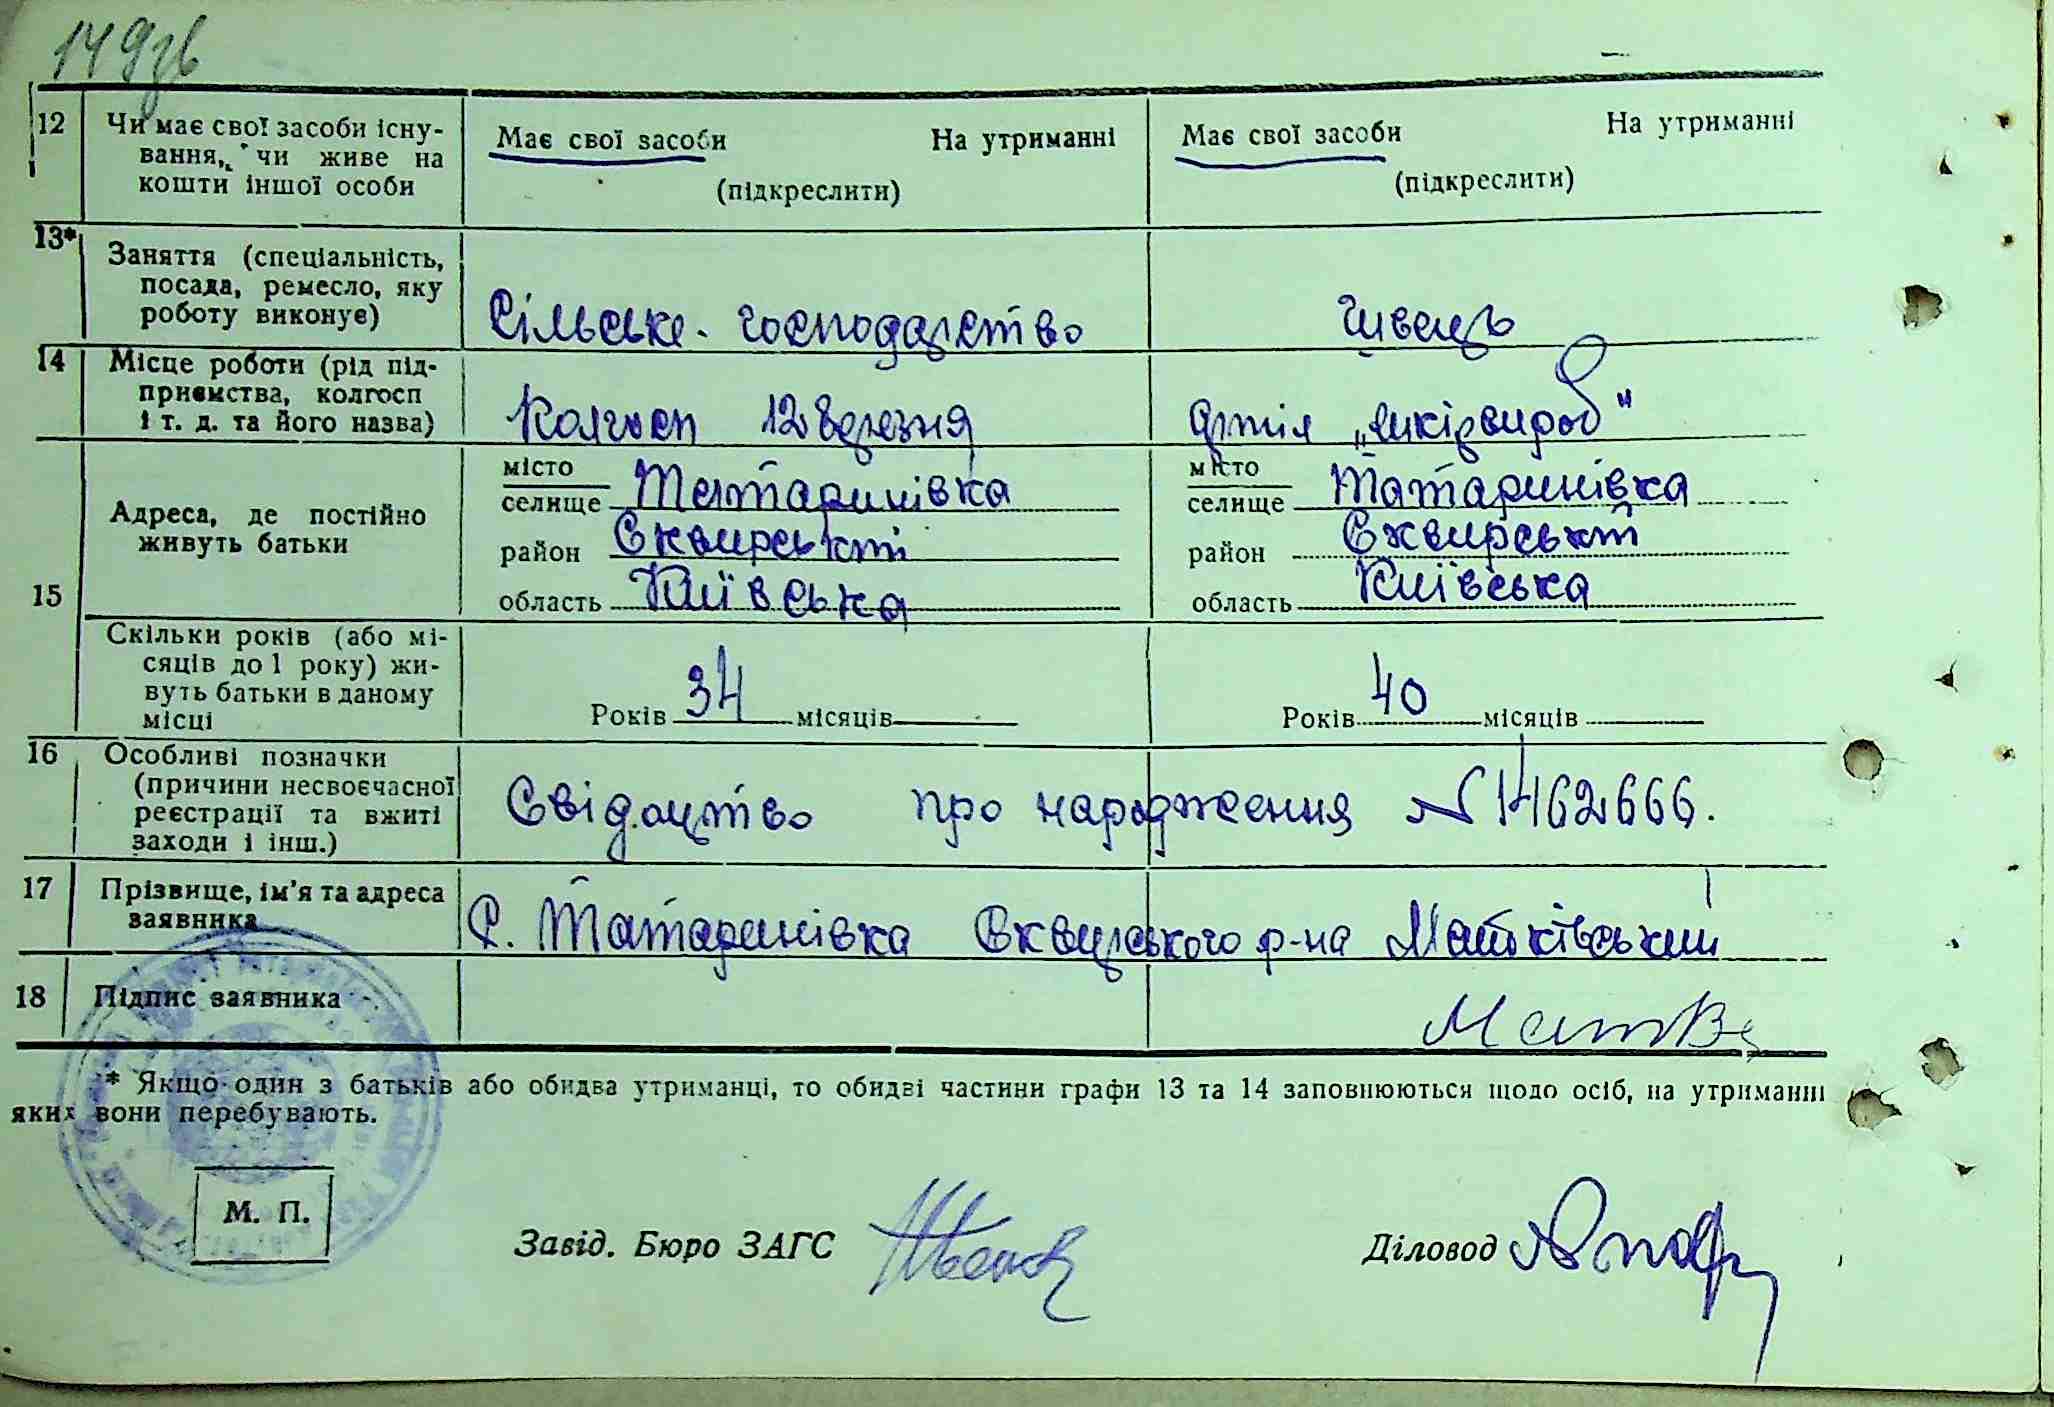 149зв
12 Чи має свої засоби існу-
вання, чи живе на
кошти іншої особи
Має свої засоби На утриманні
(підкреслити)
Має свої засоби На утриманні
(підкреслити)
13* Заняття (спеціальність,
посада, ремесло, яку
роботу виконує)
Сільське господарство
Швець
14 Місце роботи (рід під-
приємства, колгосп
і т. д. та його назва)
Колгосп 12 березня
Артіл „шкірвироб"
15 Адреса, де постійно
живуть батьки
місто
селище Татаринівка
район Сквирський
область Київська
місто
селище Татаринівка
район Сквирський
область Київська
Скільки років (або мі-
сяців до 1 року) жи-
вуть батьки в даному
місці
Років 34 місяців
Років 40 місяців
16 Особливі позначки
(причини несвоєчасної
реєстрації та вжиті
заходи і інш.)
Свідоцтво про народження N 1462666.
17 Прізвище, ім'я та адреса
заявника
С. Татаринівка Сквирського р-на Матківський
18 Підпис заявника
* Якщо один з батьків або обидва утриманці, то обидві частини графи 13 та 14 заповнюються щодо осіб, на утриманні
яких вони перебувають.
М. П.
Завід. Бюро ЗАГС
Діловод